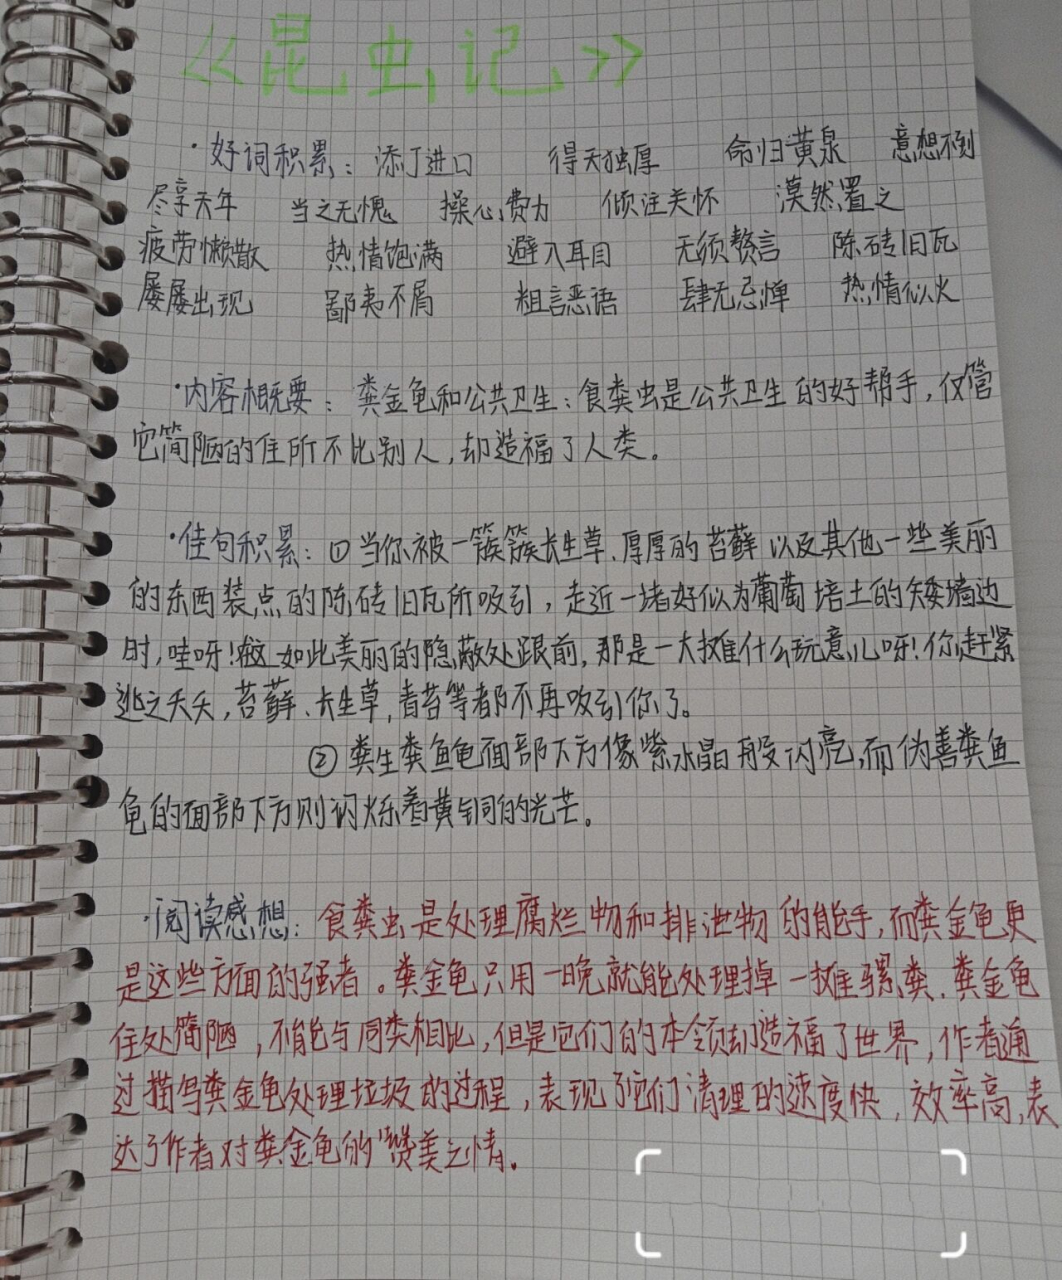 《昆虫记》
·好词积累：添丁进口 得天独厚 命归黄泉 意想不到
尽享天年 当之无愧 操心费力 倾注关怀 漠然置之
疲劳懒散 热情饱满 避入耳目 无须赘言 陈砖旧瓦
屡屡出现 鄙夷不屑 粗言恶语 肆无忌惮 热情似火
·内容概要：粪金龟和公共卫生：食粪虫是公共卫生的好帮手，仅管
它简陋的住所不比别人，却造福了人类。
·佳句积累：①当你被一簇簇长生草、厚厚的苔藓以及其他一些美丽
的东西装点的陈砖旧瓦所吸引，走近一堵好似为葡萄培土的矮墙边
时，哇呀！在如此美丽的隐蔽处跟前，那是一大摊什么玩意儿呀！你赶紧
逃之夭夭，苔藓、长生草，青苔等都不再吸引你了。
②粪生粪鱼龟面部下方像紫水晶般闪亮，而伪善粪鱼
龟的面部下方则闪烁着黄铜的光芒。
·阅读感想：食粪虫是处理腐烂物和排泄物的能手，而粪金龟更
是这些方面的强者。粪金龟只用一晚就能处理掉一摊骡粪、粪金龟
住处简陋，不能与同类相比，但是它们的本领却造福了世界，作者通
过描写粪金龟处理垃圾的过程，表现了它们清理的速度快，效率高，表
达了作者对粪金龟的赞美之情。